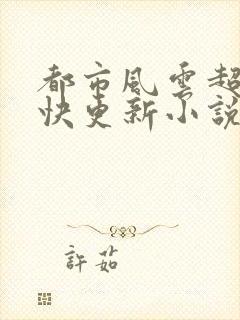 都市風雲超
快更新小說
許茹